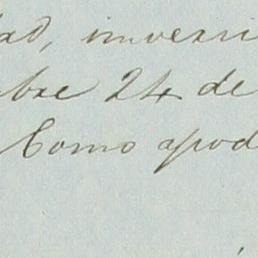 dad, inverni
bre 24 de
Como apod